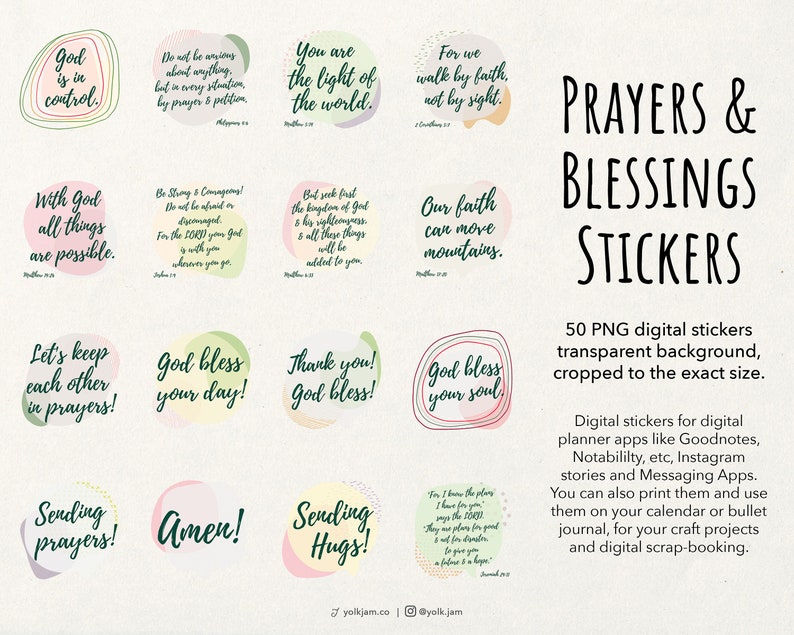 God
is in
control.
Do not be anxious
about anything,
but in every situation,
by prayer & petition.
Philippians 4:6
You are
the light of
the world.
Matthew 5:14
For we
walk by faith,
not by sight.
2 Corinthians 5:7
With God
all things
are possible.
Matthew 19:26
Be Strong & Courageous!
Do not be afraid or
discouraged.
For the LORD your God
is with you
wherever you go.
Joshua 1:9
But seek first
the kingdom of God
& his righteousness,
& all these things
will be
added to you.
Matthew 6:33
Our faith
can move
mountains.
Matthew 17:20
Let's keep
each other
in prayers!
God bless
your day!
Thank you!
God bless!
God bless
your soul.
Sending
prayers!
Amen!
Sending
Hugs!
"For I know the plans
I have for you,"
says the LORD.
"They are plans for good
& not for disaster,
to give you
a future & a hope."
Jeremiah 29:11
PRAYERS &
BLESSINGS
STICKERS
50 PNG digital stickers
transparent background,
cropped to the exact size.
Digital stickers for digital
planner apps like Goodnotes,
Notabililty, etc, Instagram
stories and Messaging Apps.
You can also print them and use
them on your calendar or bullet
journal, for your craft projects
and digital scrap-booking.
yolkjam.co | @yolk.jam